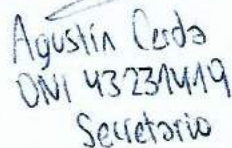 Agustín Cerda
DNI 43231419
Secretario